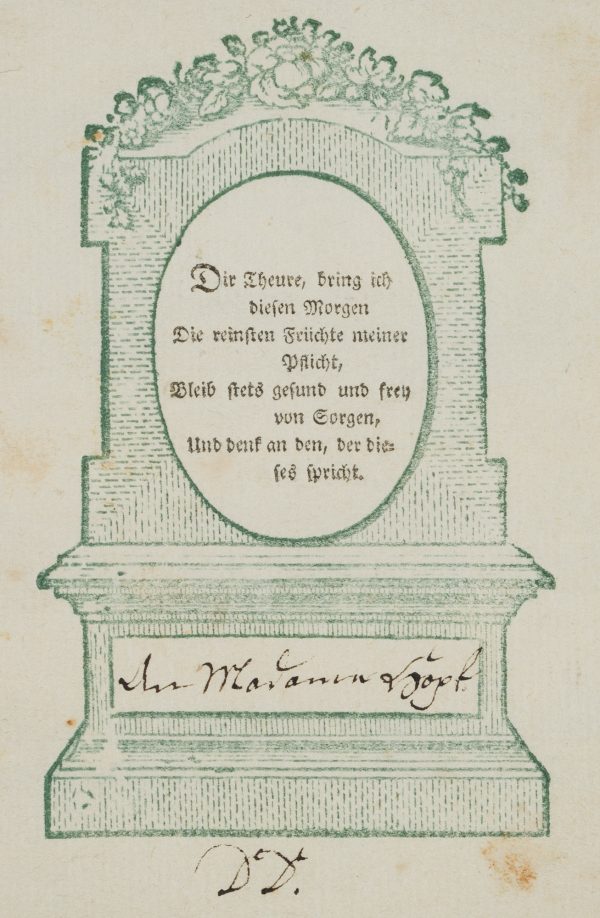 Dir Theure, bring ich
diesen Morgen
Die reinsten Früchte meiner
Pflicht,
Bleib stets gesund und frey
von Sorgen,
Und denk an den, der die⸗
ses spricht.
An Madame
D. D.